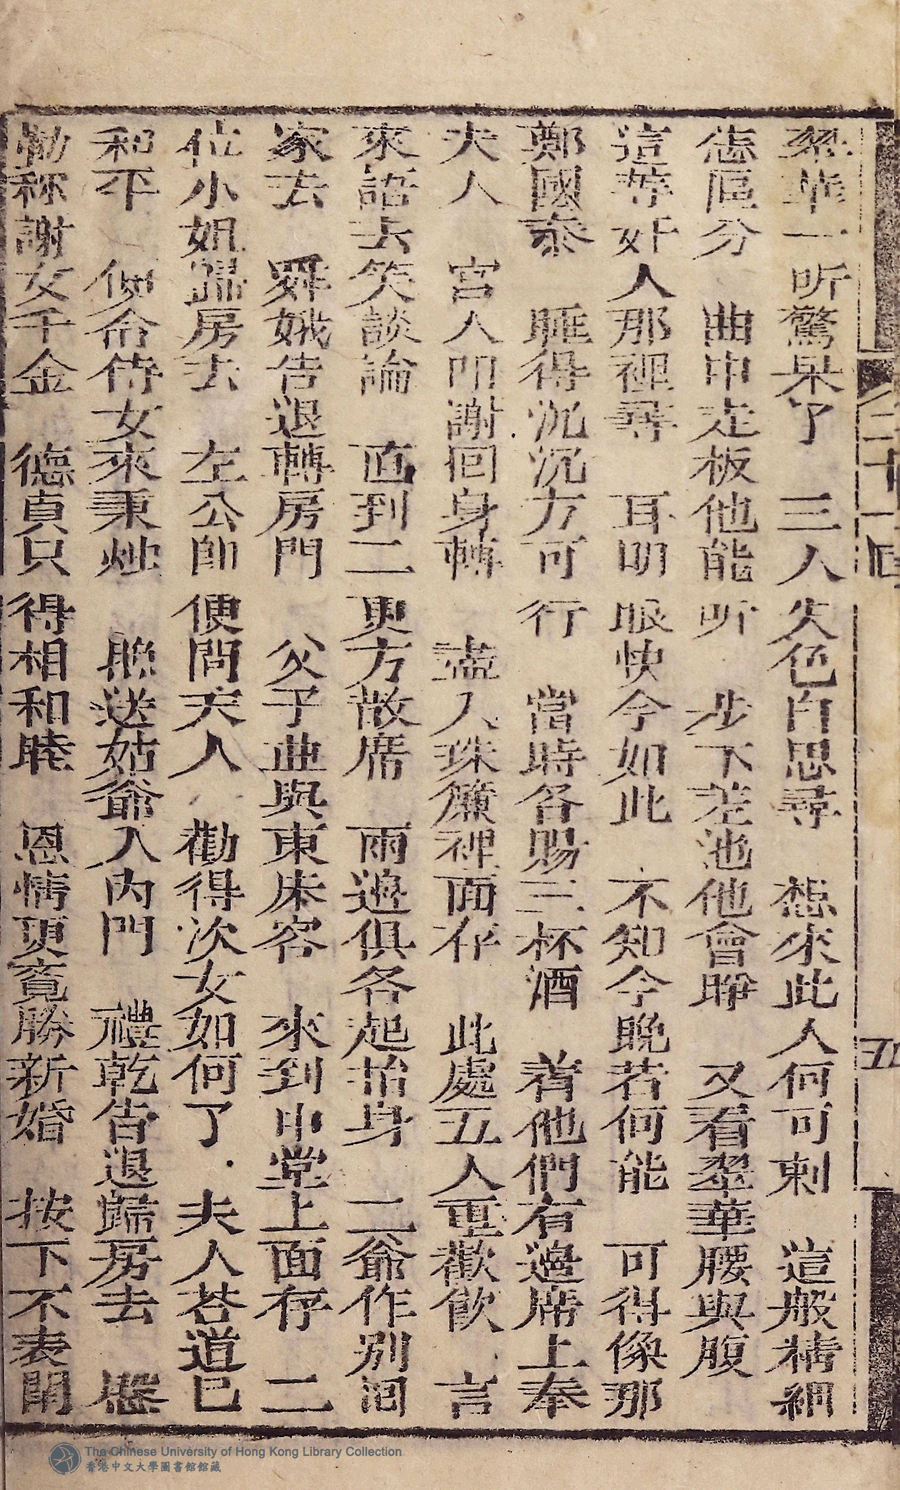 翠華一听驚呆了　三人失色自思尋　想來此人何可剌　這般精細
怎區分　曲中走板他能听　步下差池他會睁　又看翠華腰與腹
這等奸人那裡尋　耳明眼快今如此　不知今晚若何能　可得像那
鄭國泰　睡得沉沉方可行　當時各賜三杯酒　着他們有邊席上奉
夫人　宮人叩謝回身轉　盡入珠簾裡面存　此處五人重歡飲　言
來語去笑談論　直到二更方散席　兩邊俱各起抬身　二爺作别囘
家去　舜娥告退轉房門　父子曲與東床客　來到中堂上面存　二
位小姐歸房去　左公卽便問夫人　勸得次女如何了　夫人荅道已
和平　便命侍女來秉燭　送姑爺入內門　禮乾告退歸房去
勒称謝女千金　德貞只得相和睦　恩情更寬勝新婚　按下不表閨
二十一囘
五
The Chinese University of Hong Kong Library Collection
香港中文大學圖書館館藏